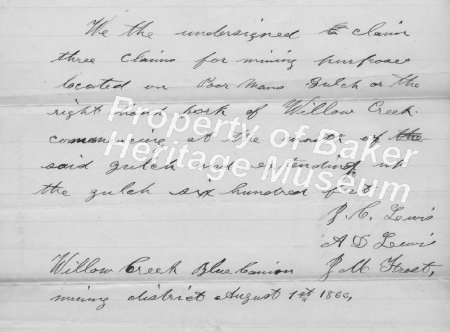 We the undersigned claim
three claims for mining purposes
located on Poor Mans Gulch or the
right hand fork of Willow Creek
commencing at the mouth of the
said gulch and extending up
the gulch six hundred feet
J. C. Lewis
A D Lewis
J M Frost,
Willow Creek Blue Canion
mining district August 1st 1866,
Property of Baker
Heritage Museum